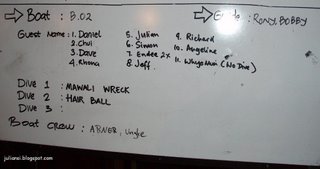 ⇒ Boat : B.02
⇒ Guide : RONY, BOBBY
Guest Name : 1. Daniel 5. Julien 9. Richard
2. Chui 6. Simon 10. Angeline
3. Dave 7. Endee 2x 11. (No Dive)
4. Rhona 8. Jeff
Dive 1 : MAWALI WRECK
Dive 2 : HAIR BALL
Dive 3 :
Boat crew : ABNER,
juliansi.blogspot.com